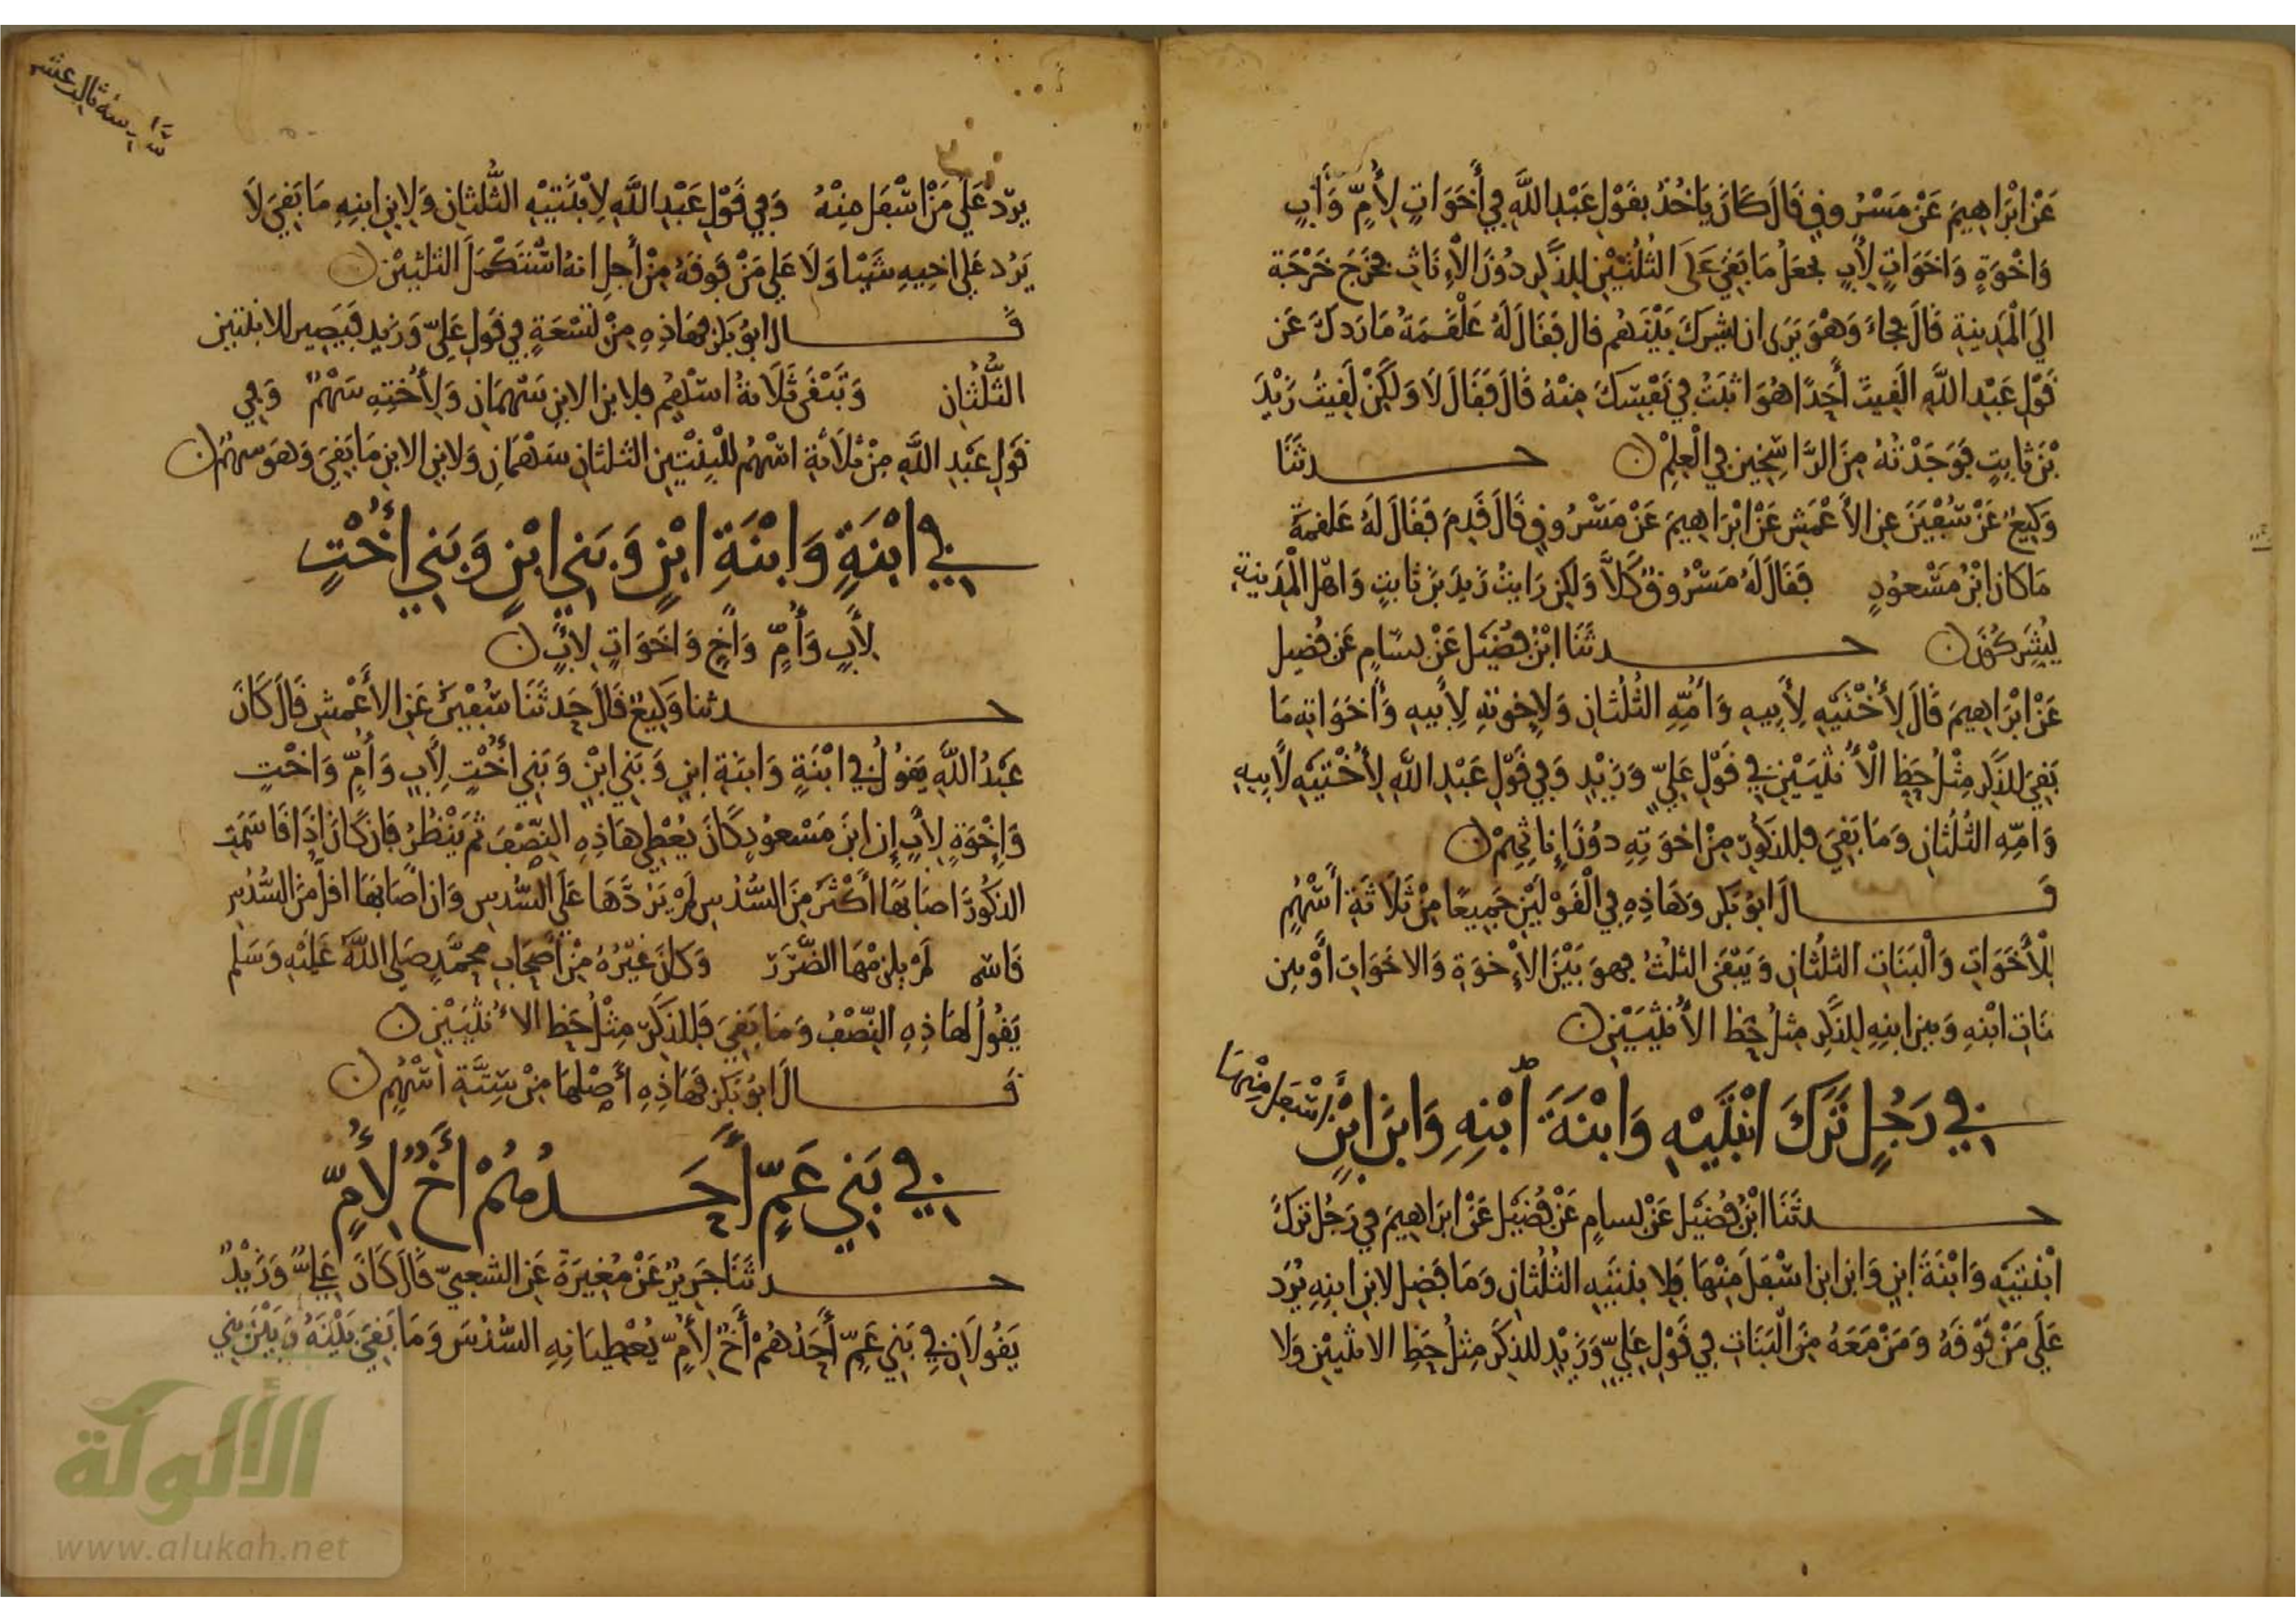 عَنْ ابْرَاهِيمَ عَنْ مَسْرُوقٍ قَالَ كَانَ يَاخُذُ بِقَوْلِ عَبْدِ اللَّهِ فِي أَخَوَاتٍ لِأُمٍّ وَأَبٍ
وَاخْوَةٍ وَاخَوَاتٍ لِأَبٍ يجعَلُ مَا بَقِيَ عَلَى الثُلُثَيْنِ لِلذَّكَرِ دُوْنَ الْأِنَاثِ فخَرَجَ خَرْجَة
الَي الْمَدِينِةِ قَالَ فجاءَ وَهْوَ يَرَى ان يُشرِكَ بَيْنَهُم قال فَقَالَ لَهُ عَلْقَمَةُ مَا رَدكَ عَن
قَوْل عَبْد اللَّهِ الَقِيتَ أَحَدًا هُوَ اثبَتُ فِي نَفْسِكَ مِنْهُ قَالَ فَقَالَ لَا وَلَكِنْ لَقِيتُ زَيْدَ
بْنَ ثَابِتٍ فَوَجَدْتُهُ مِنَ الرَّاسِخِين فِي الْعِلِمْ حدثَنَا
وَكِيعٌ عَنْ سُفْيَنَ عن الأَعْمَشِ عَنْ ابْرَاهِيمَ عَنْ مَسْرُوقٍ قَالَ قَدِمَ فَقَالَ لَهُ عَلقمَةُ
مَا كان ابْنُ مَسْعوُدٍ فَقَالَ لَهُ مَسْرُوقٌ كَلَّا وَلَكِن رَايتُ زَيدَ بنَ ثابتٍ وَاهل الْمَدِينة
يُشَرِكُوْنَ حدثَنَا ابْنُ فضَيْل عَنْ بسَامٍ عَن فُضيل
عَنْ ابْرَاهِيمَ قَالَ لِأُخْتَيْهِ لِأَبِيهِ وَأُمِّهِ الثُلُثَانِ وَلِاخوَتِهِ لِأَبِيهِ وَأَخَوَاتِهِ مَا
بَقِيَ للذَكَرِ مِثْلُ حَظِ الْأُنْثَيَيْنِ فِي قَوْلِ عَلِيٍّ وَزَيْدٍ وَفِي قَوْلِ عَبْدِ اللَّهِ لِأُخْتَيْهِ لِأَبِيهِ
وَامِّهِ الثُلُثَانِ وَمَا بَقِيَ فللذكُورِ مِنْ اخوَتِهِ دوُنَ إِنَاثِهِمْ
قَال ابوُ بَكر وَهَاذِهِ فِي الْقَوْلَيْنِ جَمِيعًا مِنْ ثَلَاثَة أَسْهُمٍ
لِلْأَخَوَاتِ وَالْبَنَاتِ الثلثَانِ وَيَبْقَى الثلثُ فهوَ بَيْنَ الأِخوَةِ وَالاخَوَاتِ أَوْ بين
بنَاتِ ابْنهِ وَبين ابنِهِ لِلذَّكَرِ مِثلُ حَظِ الأُنْثَيَيْنِ
في رَجُلٍ تَرَكَ ابْنَتَيْهِ وَابْنَةَ ابْنِهِ وَابنَ ابْنٍ
أَسْفَل مِنْهَا
حدثَنَا ابْنُ فُضَيْل عَنْ بسامٍ عَنْ فُضَيْل عَنْ ابرَاهِيمَ فِي رَجُل تَرَكَ
ابْنتَيْهِ وَابْنَةَ ابنٍ وَابن ابن اسْفَلَ مِنْهَا فَلِابْنَتَيْهِ الثُلُثَانِ وَمَا فَضِل لابن ابنِهِ يُرَد
عَلَي مَنْ فَوْقَهُ وَمَنْ مَعَهُ مِنَ الْبَنَاتِ فِي قَوْلِ عَلِيٍّ وَزَيْدٍ للذكَر مِثلُ حَظِ الانثيَيْنِ وَلا
يرُدّ عَلَي مَنْ اسْفَل مِنْهُ وَفِي قَوْلِ عَبْدِ اللَّهِ لِابْنَتَيْهِ الثُّلثان وَلِابْنِ ابنِهِ مَا بَقِيَ لَا
يَرُد عَلي اخِيهِ شَيْئا وَلَا عَلي مَنْ فَوقهُ مِنْ أَجلِ انهُ اسْتَكْمَلَ الثلثيْنِ
قَال ابوُ بَكر فهَاذِهِ مِنْ تسْعَةٍ فِي قَولِ عَلِيّ وَزَيدٍ فَيَصِير للابنتين
الثُّلُثان وَتَبْقَى ثَلَاثةُ اسْهُم فلابن الابنِ سَهْمَان وَلِأُختِهِ سَهْمٌ وَفِي
قَولِ عَبْدِ اللَّهِ مِنْ ثلَاثَةِ اسْهُم لِلْبِنْتَيْن الثلثانِ سَهْمَانِ وَلابن الابنِ مَا بَقِيَ وَهوَ سهمٌ
في ابْنَةٍ وَابْنَةِ ابْنٍ وَبَنِي ابْنٍ وَبَنِي أُخْتٍ
لِأَبٍ وَأُمٍّ وَأَخٍ وَاخَوَاتٍ لِأَبٍ
حدثنا وَكِيعٌ قَالَ حَدثَنَا سُفْيَنُ عَن الأَعْمشِ قَالَ كَانَ
عَبْدُ اللَّهِ يَقُولُ فِي ابْنَةٍ وَابنَةِ ابنٍ وَبَنِي ابْنٍ وَبَنِي أُخْتٍ لِأَبٍ وَأُمٍّ وَاخْتٍ
وَإِخْوَةٍ لِأَبٍ إِن ابنَ مَسْعوُدٍ كَانَ يُعْطِي هَاذِهِ النِّصْفَ ثمَ يَنْظُرُ فَان كَانَ إِذَا قَاسَمَتِ
الذكُورَ اصَابَهَا أَكْثَرُ مِنَ السُّدُسِ لَمْ يَزدْهَا عَلَي السُّدسِ وَان اصَابَهَا اقلُّ مِنَ السُّدُسِ
قَاسم لَمْ يلزمْهَا الضَّرَرَ وَكانَ غَيْرُهُ مِنْ اصْحَابِ مُحمَّدٍ صَلي اللَّهُ عَلَيْهِ وَسَلم
يَقُولُ لهَاذِهِ النِّصْفُ وَمَا بَقِيَ فَللذكَرِ مِثْلُ حَظِ الاُنْثَيَيْنِ
قَال ابوُ بَكر فهَاذِهِ أَصْلهَا مِنْ سِتَّةِ اسْهُمٍ
في بَنِي عَمٍّ أَحَدُهُمْ أَخٌ لِأُمٍّ
حدثَنَا جَرِيرٌ عَنْ مُغِيرَةَ عَنِ الشعبيّ قَالَ كَانَ عَلِيٌّ وَزَيْدٌ
يَقُولَانِ فِي بَنِي عَمٍّ أَحَدُهُمْ أَخٌ لِأُمٍّ يُعْطِيَانِهِ السُّدُسَ وَمَا بَقِيَ بَيْنَهُ وَبَيْنَ بَنِي
الألوكة
www.alukah.net